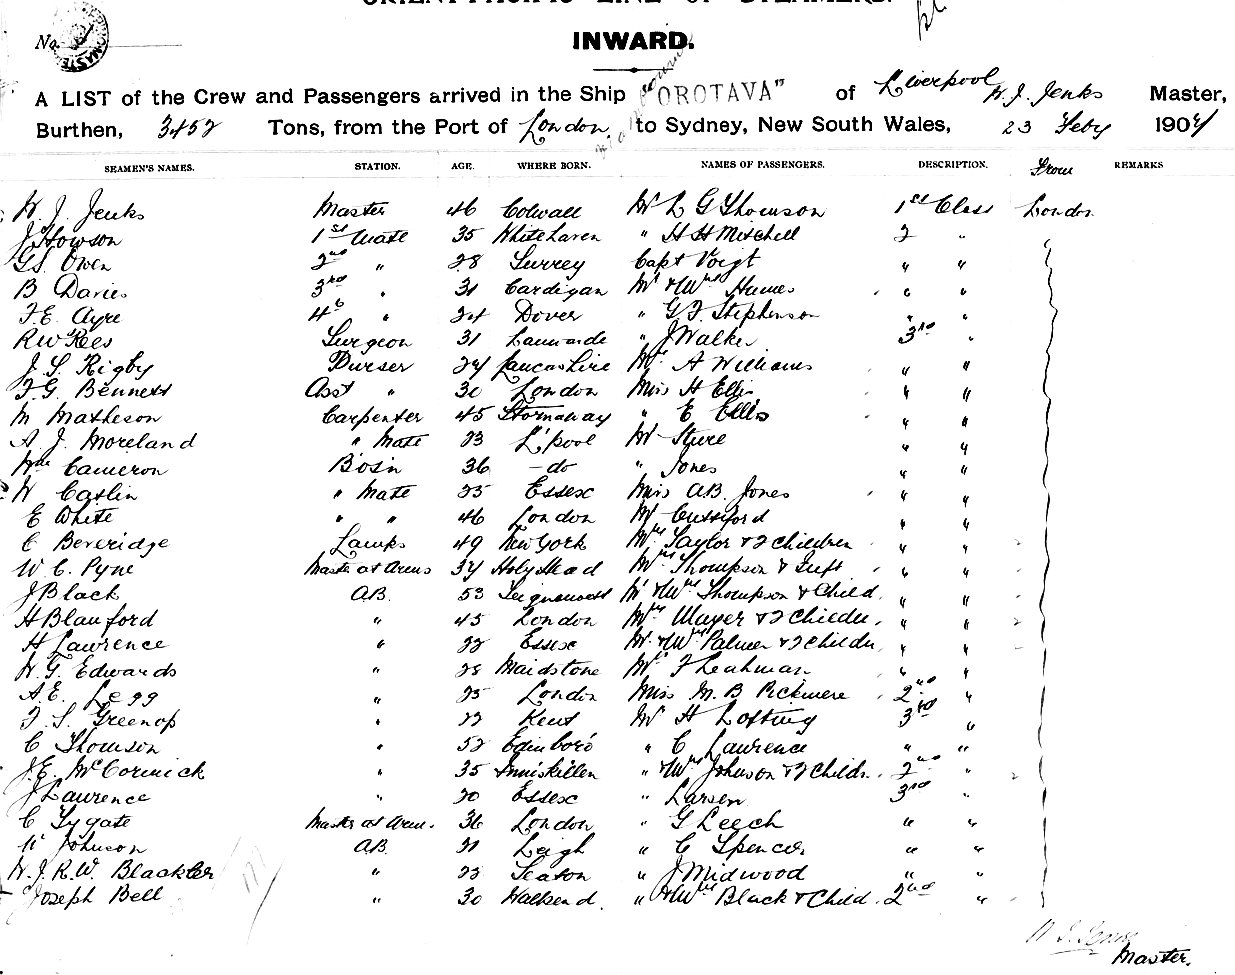 ORIENT-PACIFIC LINE OF STEAMERS.
No.
INWARD.
A LIST of the Crew and Passengers arrived in the Ship "OROTAVA" of Liverpool W. J. Jenks Master,
Burthen, 3452 Tons, from the Port of London to Sydney, New South Wales, 23 Feby 1904
SEAMEN'S NAMES. STATION. AGE. WHERE BORN. NAMES OF PASSENGERS. DESCRIPTION. From REMARKS
W. J. Jenks Master 46 Colwall Mr L G Thomson 1st Class London
J Howson 1st Mate 35 Whitehaven " H H Mitchell 2 "
G.S. Owen 2nd " 28 Surrey Capt Voigt " "
B Davies 3rd " 31 Cardigan Mr & Mrs Hames " "
F. E. Ayre 4th " 24 Dover " G. F. Stephenson " "
R W Rees Surgeon 31 " J Walker 3rd "
J. S. Rigby Purser 24 Lancashire Mr A Williams " "
F. G. Bennett Asst " 30 London Miss H Ellis " "
M Matheson Carpenter 45 Stornaway " E Ellis " "
A. J. Moreland " Mate 23 L'pool Mr Sture " "
Wm Cameron Bosn 36 - do " Jones " "
W Caslin " Mate 25 Essex Miss A.B. Jones " "
E White " " 46 London Mr " "
C Beveridge Lamps 49 New York Mrs Taylor & 2 children " "
W. C. Pyne Master at Arms 34 Holyhead Mrs Thompson & Inft " "
J Black A.B. 53 Mr & Mrs Thompson & Child " "
H Blanford " 45 London Mrs Mayer & 2 Childn " "
H Lawrence " 22 Essex Mr & Mrs Palmer & 2 Childn " "
W. G. Edwards " 28 Maidstone Mr F Leahman " "
A. E. Legg " 25 London Miss M. B Pickmere 2nd "
F. S. Greenop " 22 Kent Mr H Lofting 3rd "
C Thomson " 52 Edinboro " C Lawrence " "
J. E. McCormick " 35 Inniskillen " & Mrs Johnson & 2 Childn 2nd "
J Lawrence " 20 Essex " Larsen 3rd "
C Lygate Master at Arms 36 London " G Leech " "
Johnson A.B. 21 Leigh " C Spencer " "
W. J. R. W. Blackler " 23 Seaton " J Midwood " "
Joseph Bell " 30 Wallsend " & Mrs Black & Child 2nd "
W. J. Jenks
Master.